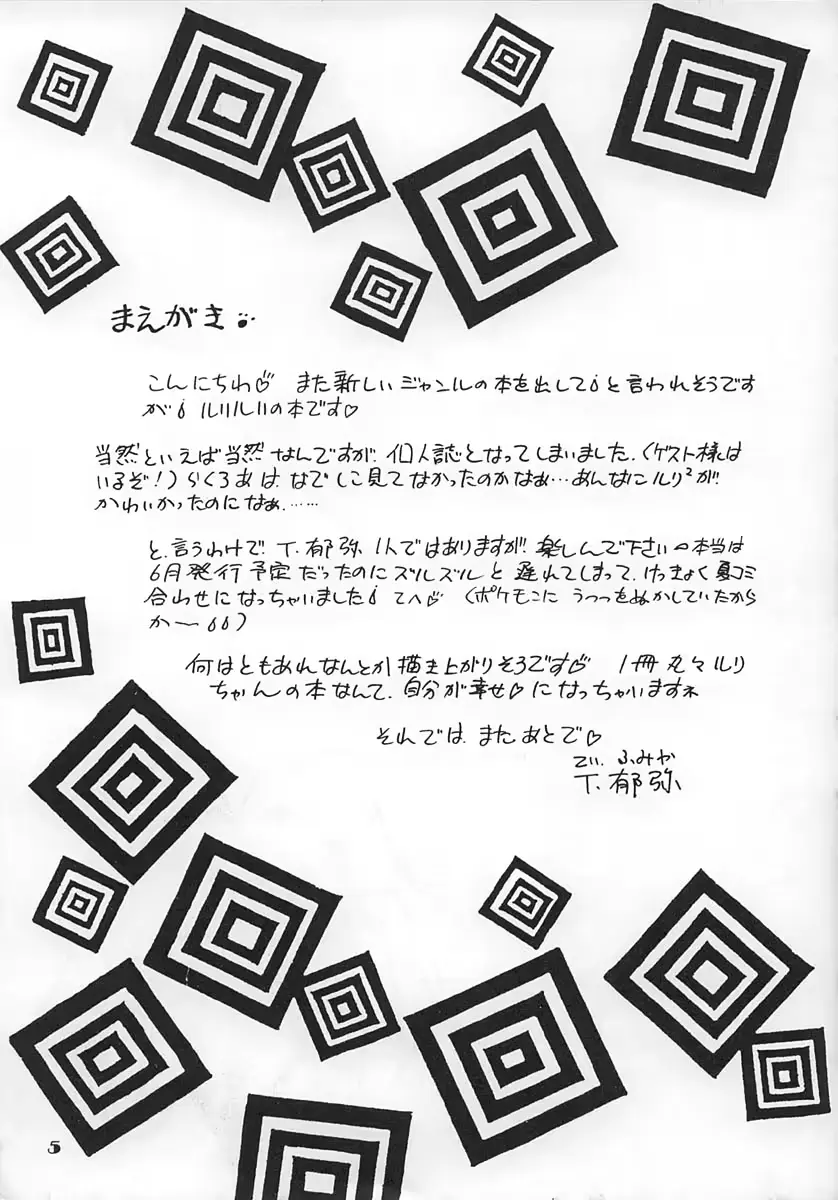 まえがき
こんにちわ♡ また新しいジャンルの本を出して！と言われそうです
が！ルリルリの本です♡
当然といえば当然なんですが、個人誌となってしまいました.(ゲスト様は
いるぞ！)らくろあは なでしこ見てなかったのかなぁ…あんなにルリ²が
かわいかったのになぁ.……
と.言うわけで、T.郁弥 1人ではありますが、楽しんで下さい 本当は
6月発行予定だったのにズルズルと遅れてしまって、けっきょく夏コミ
合わせになっちゃいました！てへ♡ (ポケモンに うつつをぬかしていたから
か〜)
何はともあれなんとか描き上がりそうです♡ 1冊丸々ルリ
ちゃんの本なんて、自分が幸せ♡になっちゃいますネ
それでは、またあとで♡
てぃ. ふみや
T.郁弥
5